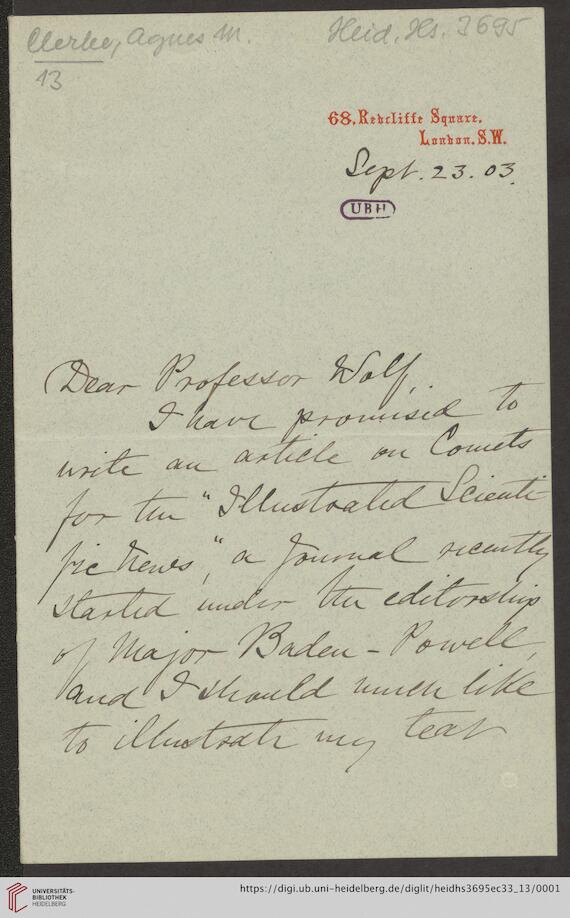 Clerke, Agnes M.
Heid. Hs. 3695
13
68, Redcliffe Square,
London. S.W.
Sept. 23. 03.
UBH
Dear Professor Wolf,
I have promised to
write an article on Comets
for the "Illustrated Scienti-
fic News," a Journal recently
started under the editorship
of Major Baden-Powell,
and I should much like
to illustrate my text
UNIVERSITÄTS-
BIBLIOTHEK
HEIDELBERG
https://digi.ub.uni-heidelberg.de/diglit/heidhs3695ec33_13/0001